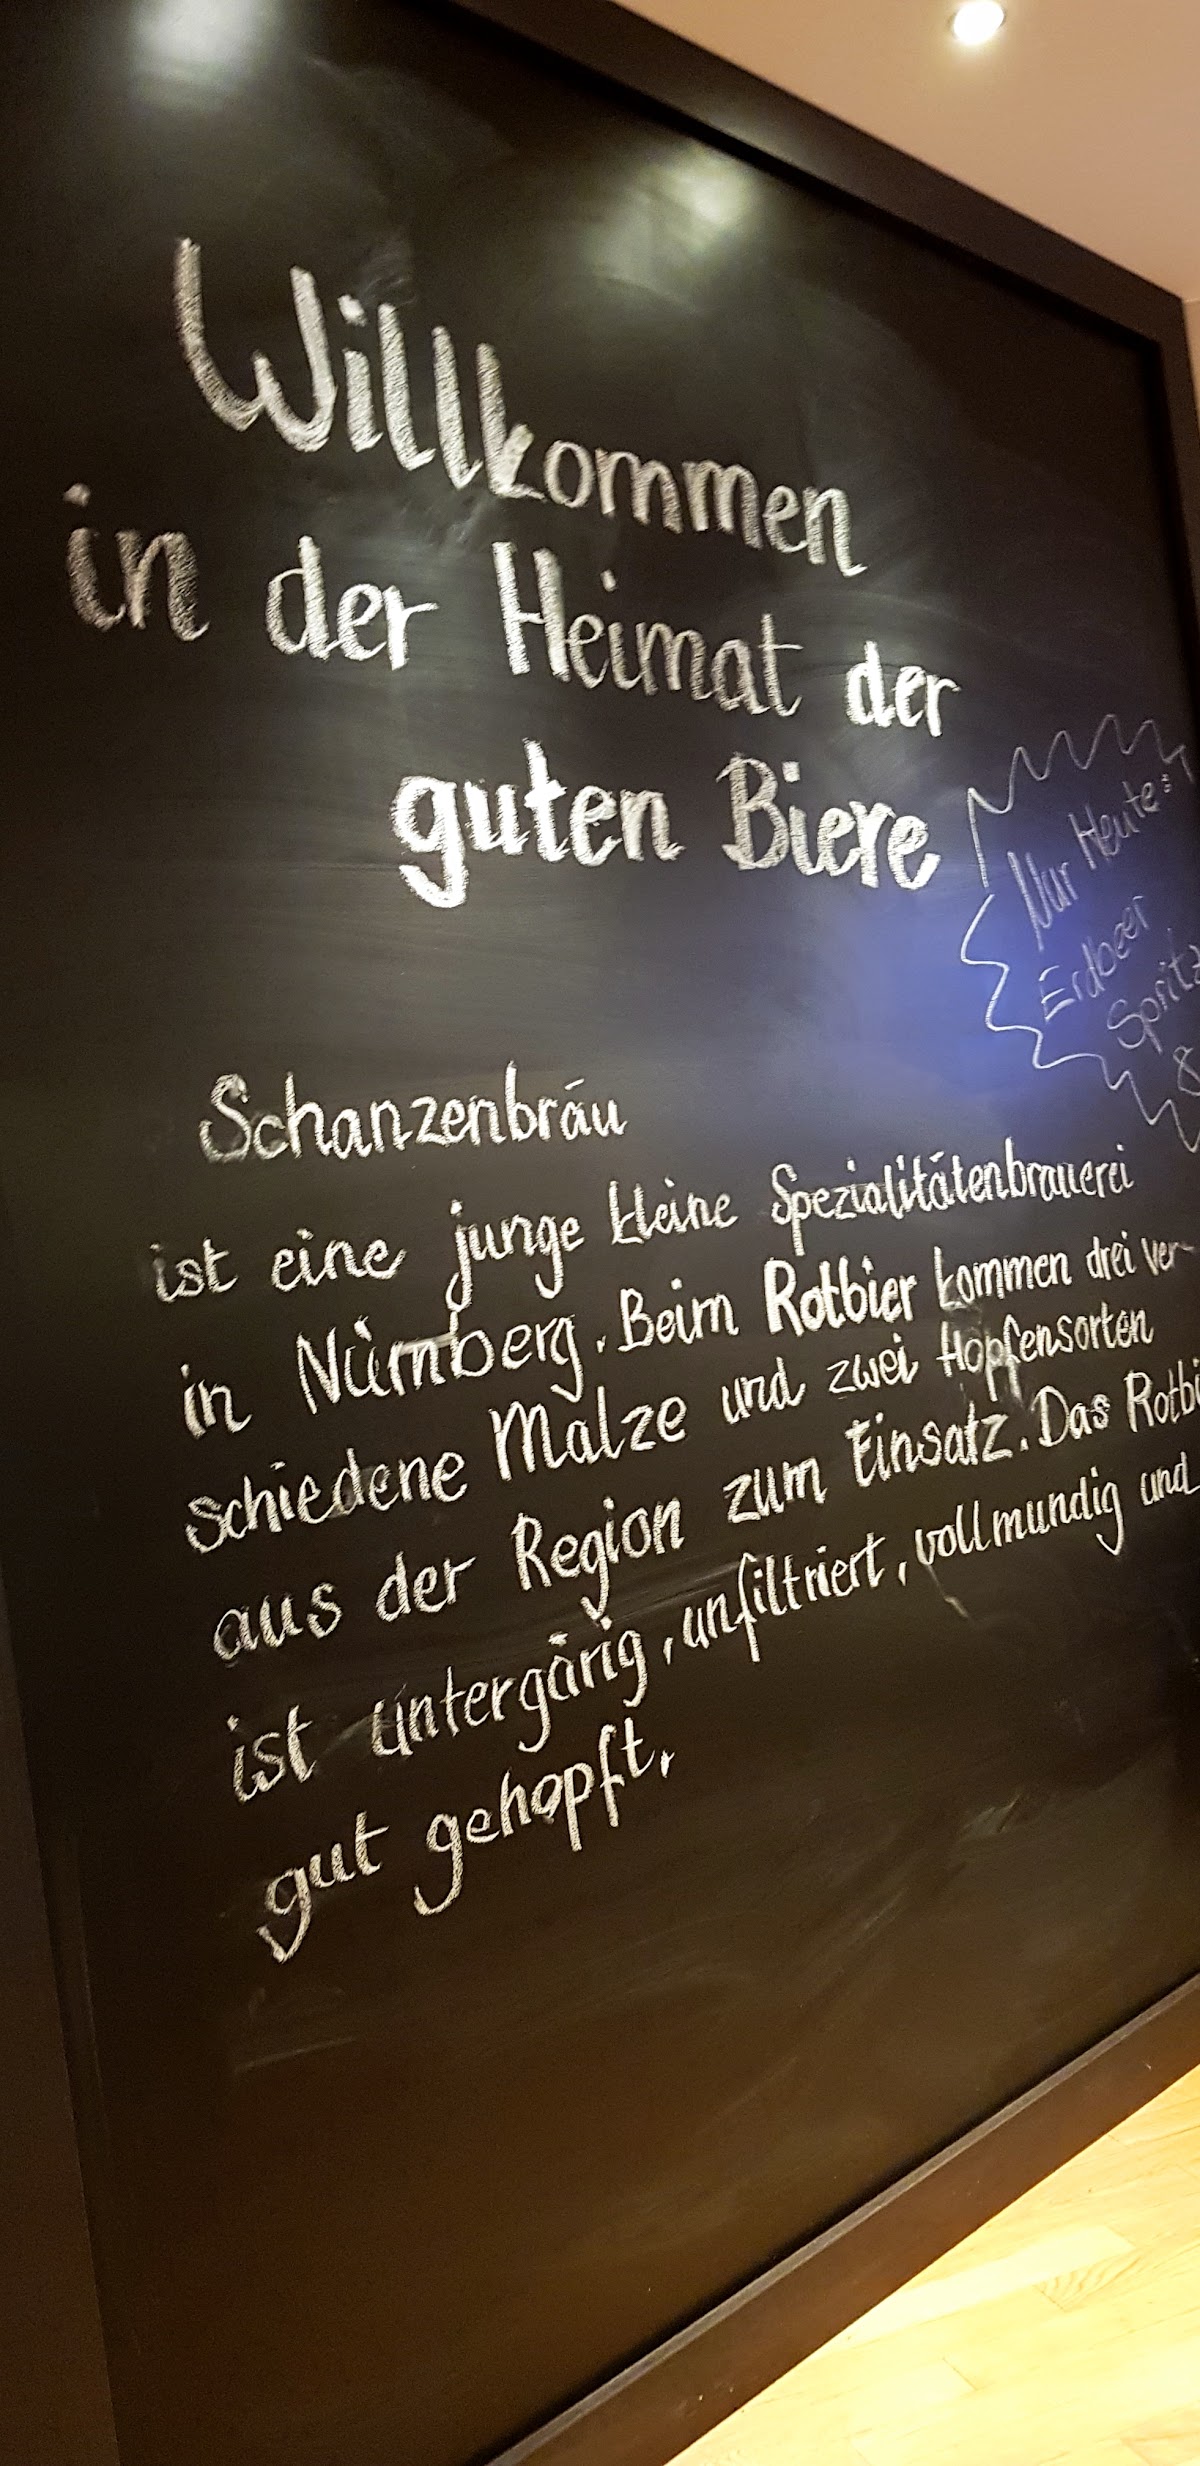 Willkommen
in der Heimat der
guten Biere
Nur Heute:
Erdbeer
Spritz
8
Schanzenbräu
ist eine junge kleine Spezialitätenbrauerei
in Nürnberg. Beim Rotbier kommen drei ver-
schiedene Malze und zwei Hopfensorten
aus der Region zum Einsatz. Das Rotbi
ist untergärig, unfiltriert, vollmundig und
gut gehopft.